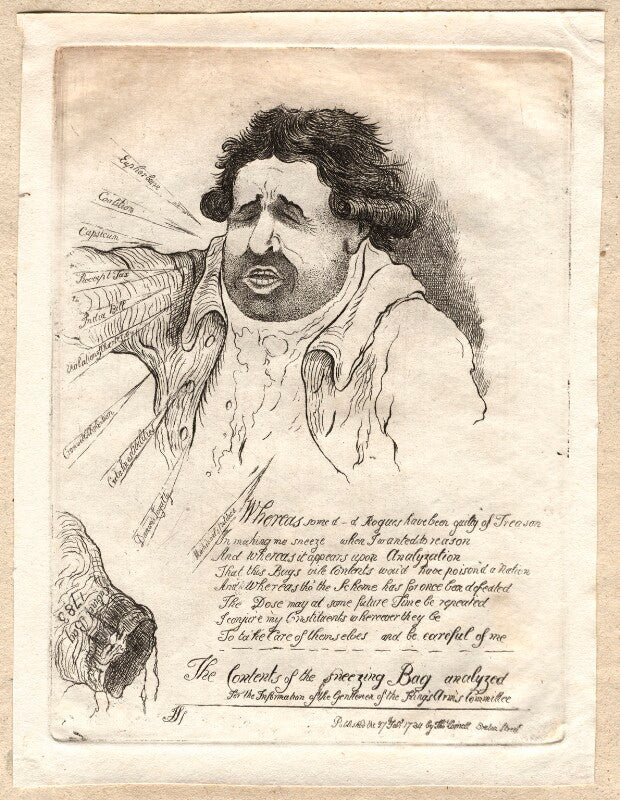 Euphorbium
Coalition
Capsicum
Receipt Tax
India Bill
Violation of
Whereas some d–d Rogues have been guilty of Treason
In making me sneeze when I wanted to reason
And whereas it appears upon Analyzation
That this Bags vile Contents wou'd have poison'd a Nation
And Whereas tho' the Scheme has for once been defeated
The Dose may at some future Time be repeated
I conjure my Constituents whereever they be
To take Care of themselves and be careful of me
1783
The Contents of the sneezing Bag analyzed
For the Information of the Gentlemen of the King's Arms Committee
Published the 27 Feby 1784 by Thos Cornell Bruton Street